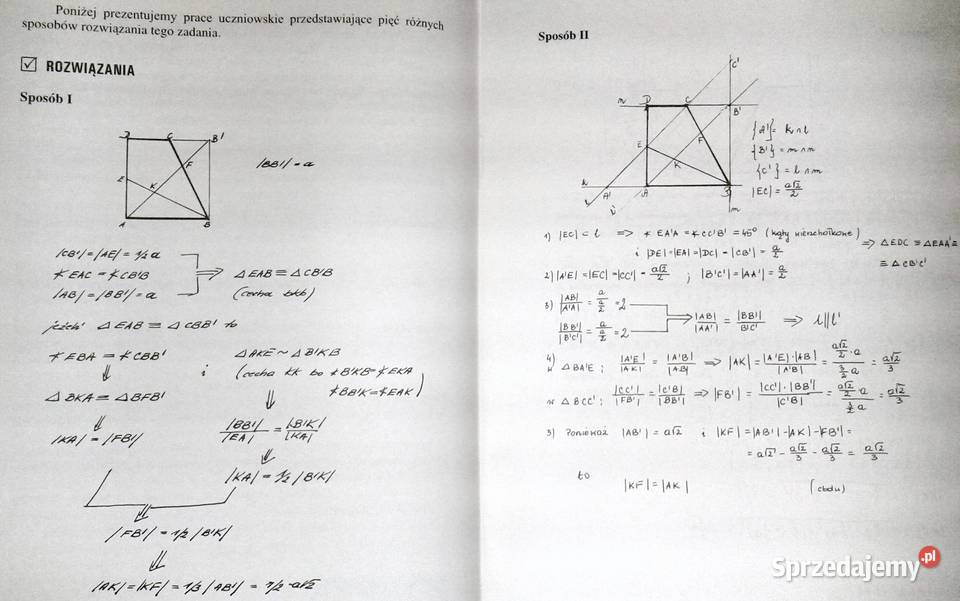 Poniżej prezentujemy prace uczniowskie przedstawiające pięć różnych
sposobów rozwiązania tego zadania.
ROZWIĄZANIA
Sposób I
D C B'
|BB'| = a
F
E
K
A B
|CB'| = |AE| = 1/2 a
∢ EAC = ∢ CB'B ⟹ △ EAB ≡ △ CB'B
|AB| = |BB'| = a (cecha bkb)
jeżeli △ EAB ≡ △ CBB' to
∢ EBA = ∢ CBB' i △ AKE ~ △ B'KB
(cecha kk bo ∢ B'KB = ∢ EKA
∢ BB'K = ∢ EAK)
△ BKA ≡ △ BFB'
|KA| = |FB'| |BB'|/|EA| = |B'K|/|KA|
|KA| = 1/2 |B'K|
|FB'| = 1/2 |B'K|
|AK| = |KF| = 1/3 |AB'| = 1/2 · a√2
Sposób II
C'
n D C B'
{A'} = k ∩ l
F
E
{B'} = m ∩ n
K
{C'} = l ∩ m
k A' A B
|EC| = a√2/2
l l' m
1) |EC| ⊂ l ⟹ ∢ EA'A = ∢ CC'B' = 45° (kąty wierzchołkowe)
i |DE| = |EA| = |DC| = |CB'| = a/2 ⟹ △ EDC ≡ △ EAA' ≡
≡ △ CB'C'
2) |A'E| = |EC| = |CC'| = a√2/2 ; |B'C'| = |AA'| = a/2
3) |AB|/|A'A| = a/(a/2) = 2
|BB'|/|B'C'| = a/(a/2) = 2 ⟹ |AB|/|AA'| = |BB'|/|B'C'| ⟹ l || l'
4)
w △ BA'E ; |A'E|/|AK| = |A'B|/|AB| ⟹ |AK| = |A'E|·|AB|/|A'B| = (a√2/2 · a)/(3/2 a) = a√2/3
w △ BCC' ; |CC'|/|FB'| = |C'B|/|BB'| ⟹ |FB'| = |CC'|·|BB'|/|C'B| = (a√2/2 · a)/(3/2 a) = a√2/3
5) Ponieważ |AB'| = a√2 i |KF| = |AB'| - |AK| - |FB'| =
= a√2 - a√2/3 - a√2/3 = a√2/3
to
|KF| = |AK| (cbdu)
Sprzedajemy.pl